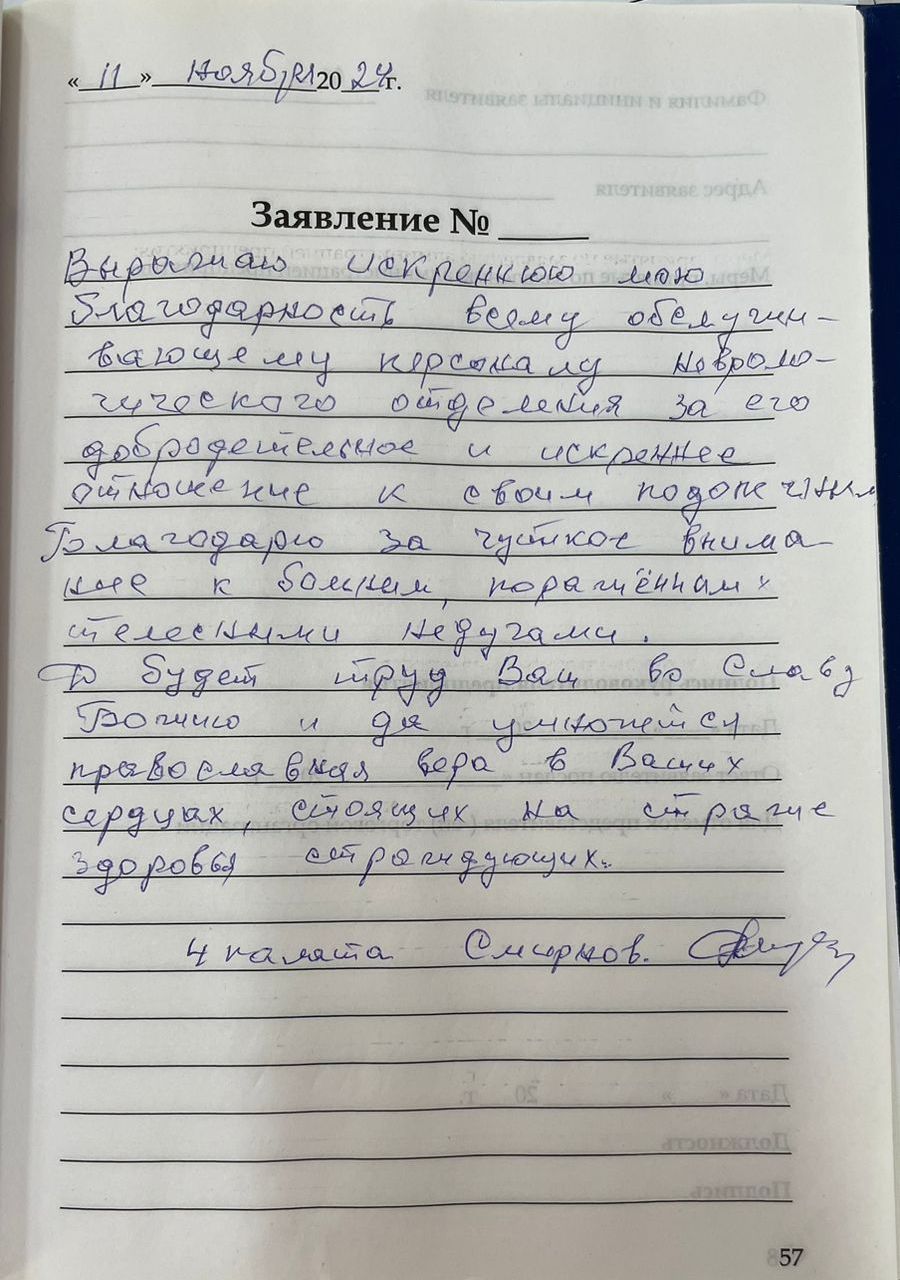 « 11 » Ноября 2024г.
Заявление № ____
Выражаю искреннюю мою
благодарность всему обслужи-
вающему персоналу невроло-
гического отделения за его
добродетельное и искреннее
отношение к своим подопечным
Благодарю за чуткое внима-
ние к больным, поражённым
телесными недугами.
Да будет труд Ваш во Славу
Божию и да умножется
православная вера в Ваших
сердцах, стоящих на страже
здоровья страждующих.
4 палата Смирнов.
57